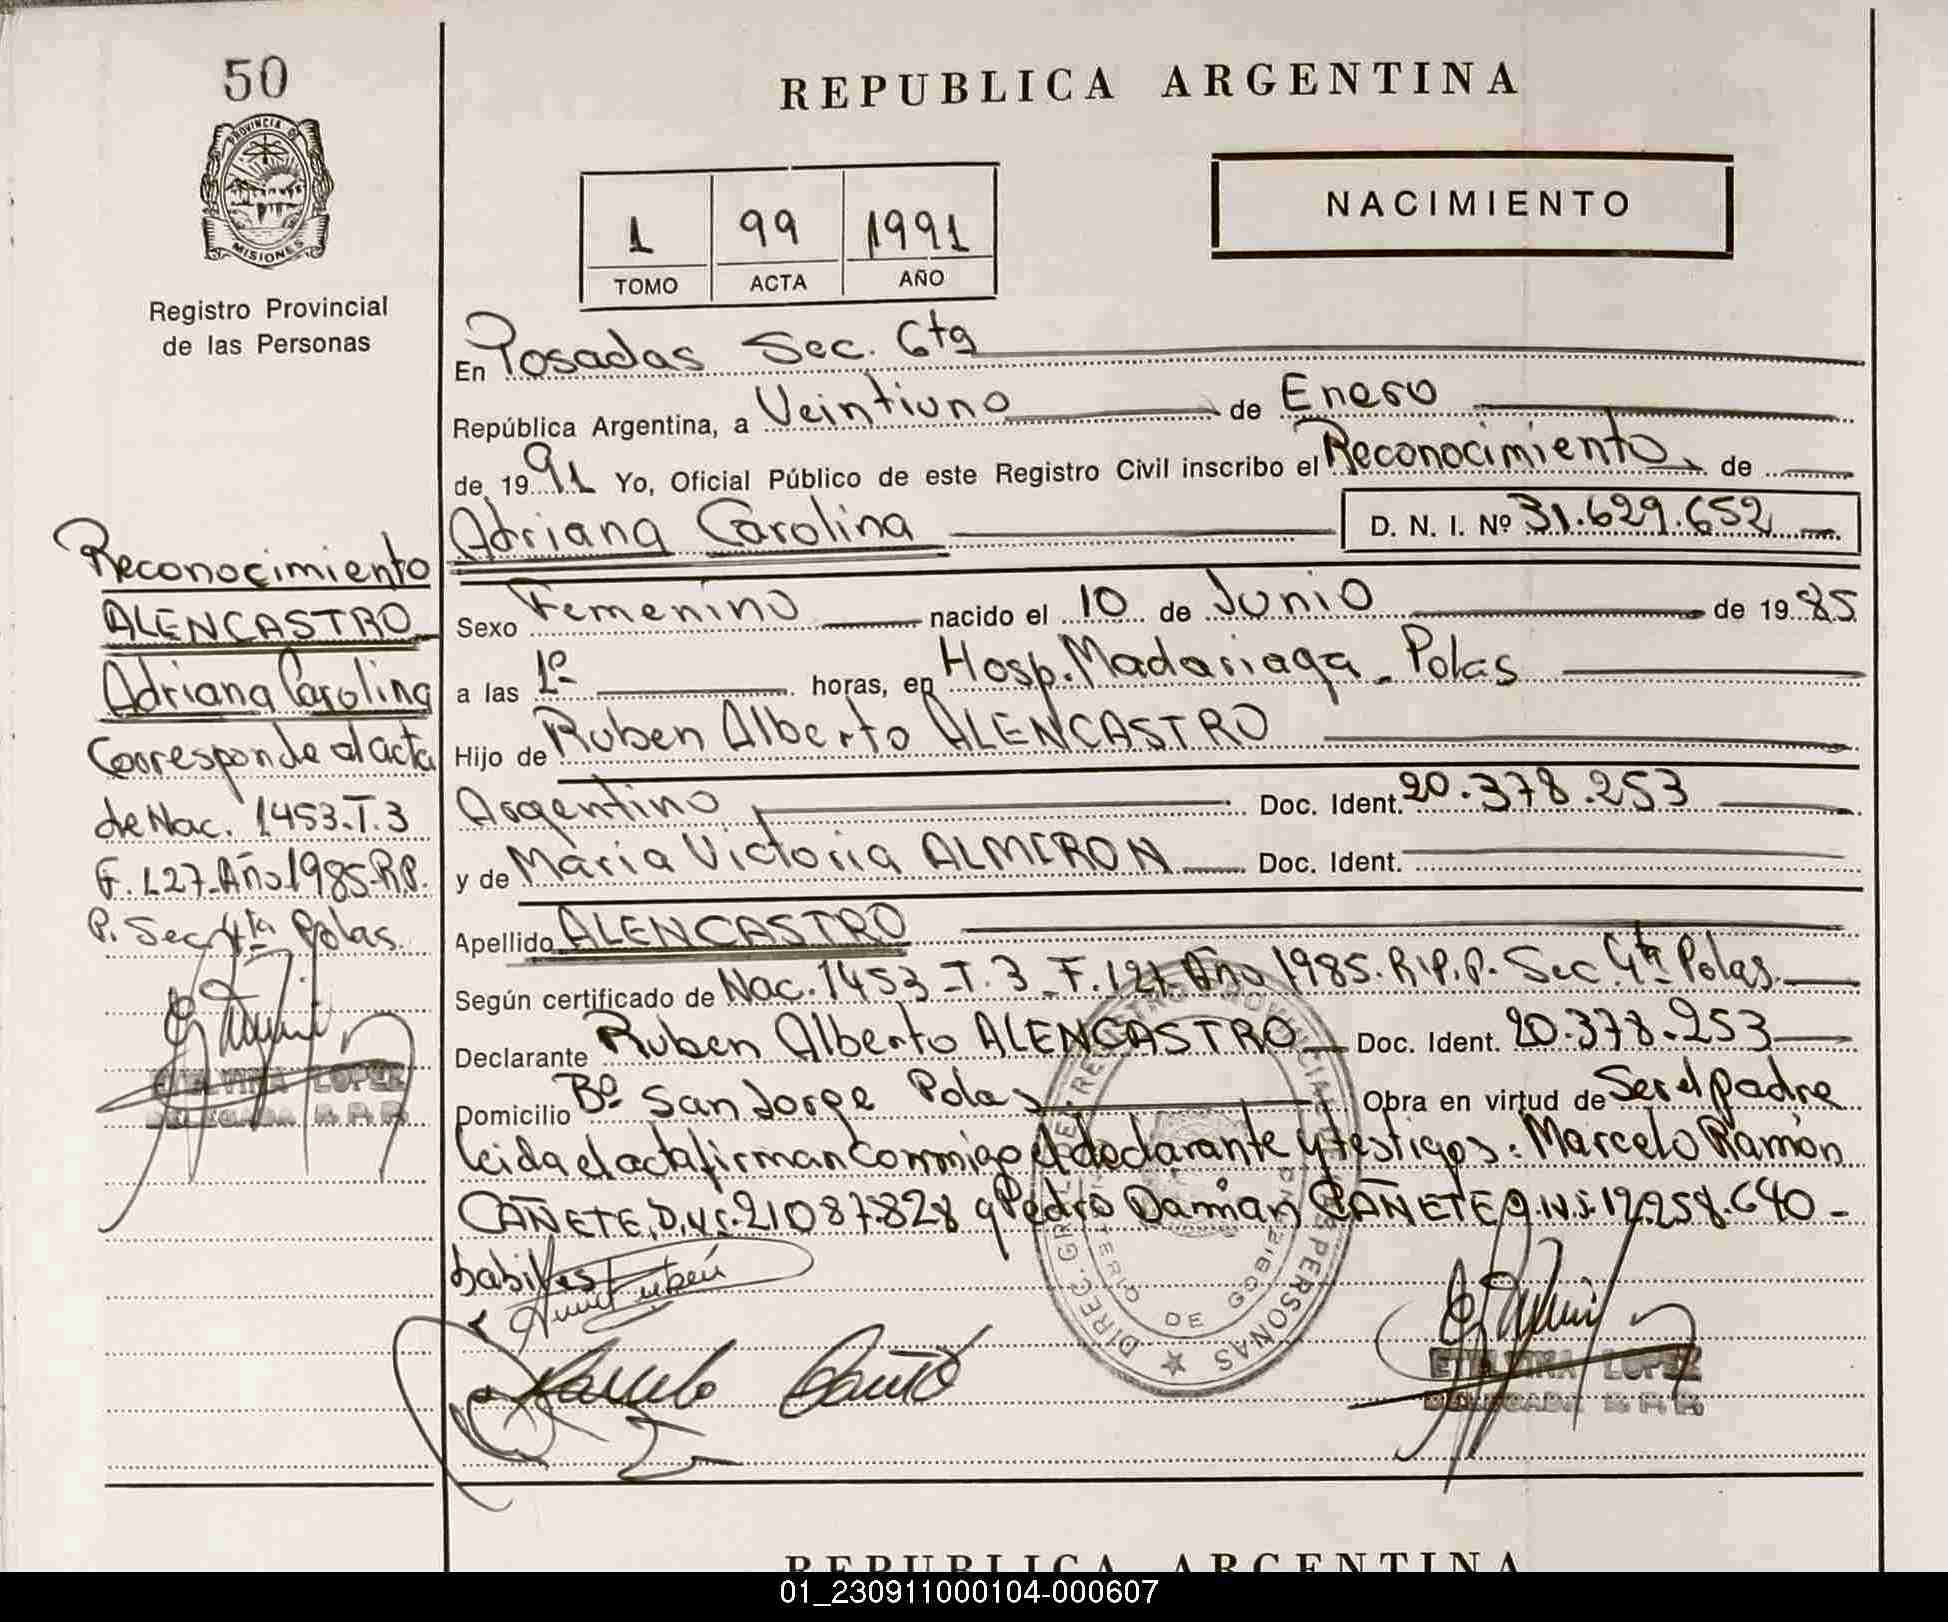 50
REPUBLICA ARGENTINA
PROVINCIA DE
MISIONES
Registro Provincial
de las Personas
NACIMIENTO
1 99 1991
TOMO ACTA AÑO
En Posadas Sec. 6ta
República Argentina, a Veintiuno de Enero
de 1991 Yo, Oficial Público de este Registro Civil inscribo el Reconocimiento de
Adriana Carolina D. N. I. Nº 31.629.652
Sexo Femenino nacido el 10 de Junio de 1985
a las 1º horas, en Hosp. Madariaga - Pdas
Hijo de Ruben Alberto ALENCASTRO
Argentino Doc. Ident. 20.378.253
y de Maria Victoria ALMIRON Doc. Ident.
Apellido ALENCASTRO
Según certificado de Nac. 1453 - T. 3 - F. 127 - Año 1985. R.P.P. Sec 4ta Pdas.
Declarante Ruben Alberto ALENCASTRO Doc. Ident. 20.378.253
Domicilio Bº San Jorge Pdas Obra en virtud de Ser el padre
Leida el acta firman conmigo el declarante y testigos: Marcelo Ramón
CAÑETE, D.N.I. 21087828 y Pedro Damian CAÑETE D.N.I. 12.258.640 -
habiles
Reconocimiento
ALENCASTRO
Adriana Carolina
Corresponde al acta
de Nac. 1453. T. 3
F. 127 - Año 1985 - R.P.
P. Sec 4ta Pdas.
ETELVINA LOPEZ
DELEGADA R. P. P.
DIREC. GRAL. DE REGISTRO PROVINCIAL DE LAS PERSONAS
MINISTERIO DE GOBIERNO
ETELVINA LOPEZ
DELEGADA R. P. P.
REPUBLICA ARGENTINA
01_230911000104-000607